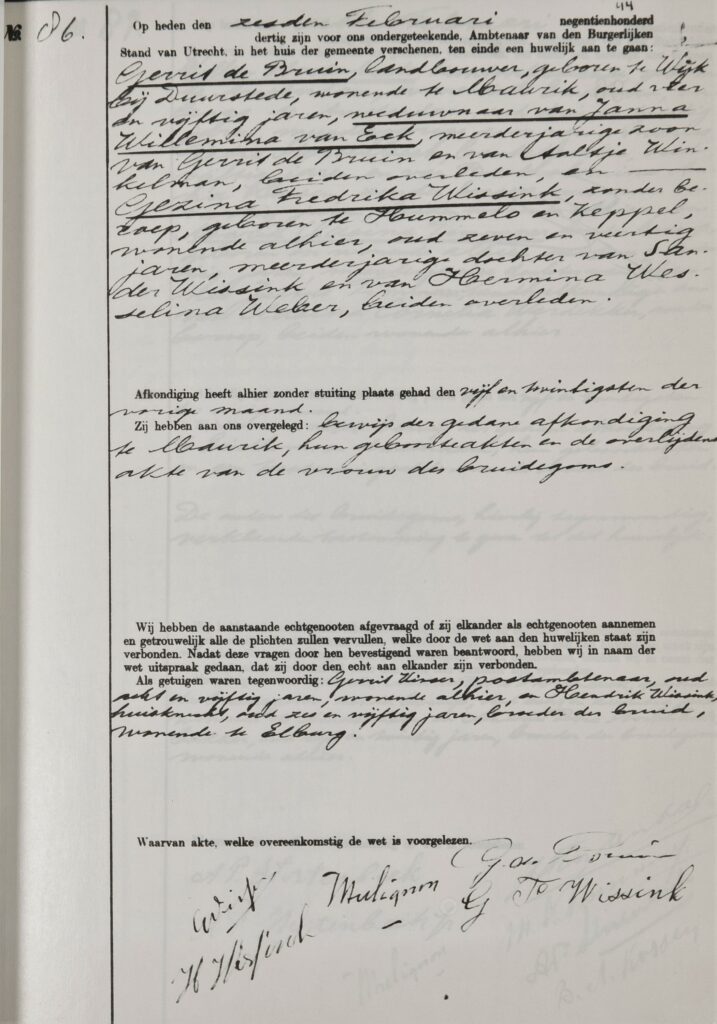 44
No. 86.
Op heden den zesden Februari negentienhonderd
dertig zijn voor ons ondergeteekende, Ambtenaar van den Burgerlijken
Stand van Utrecht, in het huis der gemeente verschenen, ten einde een huwelijk aan te gaan:
Gerrit de Bruin, landbouwer, geboren te Wijk
bij Duurstede, wonende te Maurik, oud vier
en vijftig jaren, weduwnaar van Janna
Willemina van Eck, meerderjarige zoon
van Gerrit de Bruin en van Aaltje Win-
kelman, beiden overleden, en
Gezina Fredrika Wissink, zonder be-
roep, geboren te Hummelo en Keppel,
wonende alhier, oud zeven en veertig
jaren, meerderjarige dochter van San-
der Wissink en van Hermina Wes-
selina Weber, beiden overleden.
Afkondiging heeft alhier zonder stuiting plaats gehad den vijf en twintigsten der
vorige maand.
Zij hebben aan ons overgelegd: bewijs der gedane afkondiging
te Maurik, hun geboorteakten en de overlijdens
akte van de vrouw des bruidegoms.
Wij hebben de aanstaande echtgenooten afgevraagd of zij elkander als echtgenooten aannemen
en getrouwelijk alle de plichten zullen vervullen, welke door de wet aan den huwelijken staat zijn
verbonden. Nadat deze vragen door hen bevestigend waren beantwoord, hebben wij in naam der
wet uitspraak gedaan, dat zij door den echt aan elkander zijn verbonden.
Als getuigen waren tegenwoordig: Gerrit postambtenaar, oud
acht en vijftig jaren, wonende alhier, en Hendrik Wissink,
huisknecht, oud zes en vijftig jaren, broeder der bruid,
wonende te Elburg.
Waarvan akte, welke overeenkomstig de wet is voorgelezen.
G. de Bruin
Mulignon
G F Wissink
H Wissink